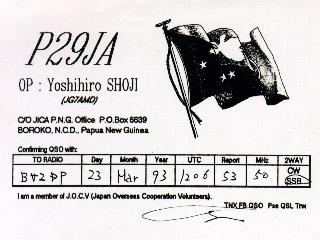 P29JA
OP : Yoshihiro SHOJI
(JG7AMD)
C/O JICA P.N.G. Office P.O.Box 6639
BOROKO, N.C.D., Papua New Guinea
Confirming QSO with:
TO RADIO Day Month Year UTC Report MHz 2WAY
23 Mar 93 1206 53 50 CW SSB
I am a member of J.O.C.V (Japan Overseas Cooperation Volunteers).
TNX FB QSO Pse QSL Tnx